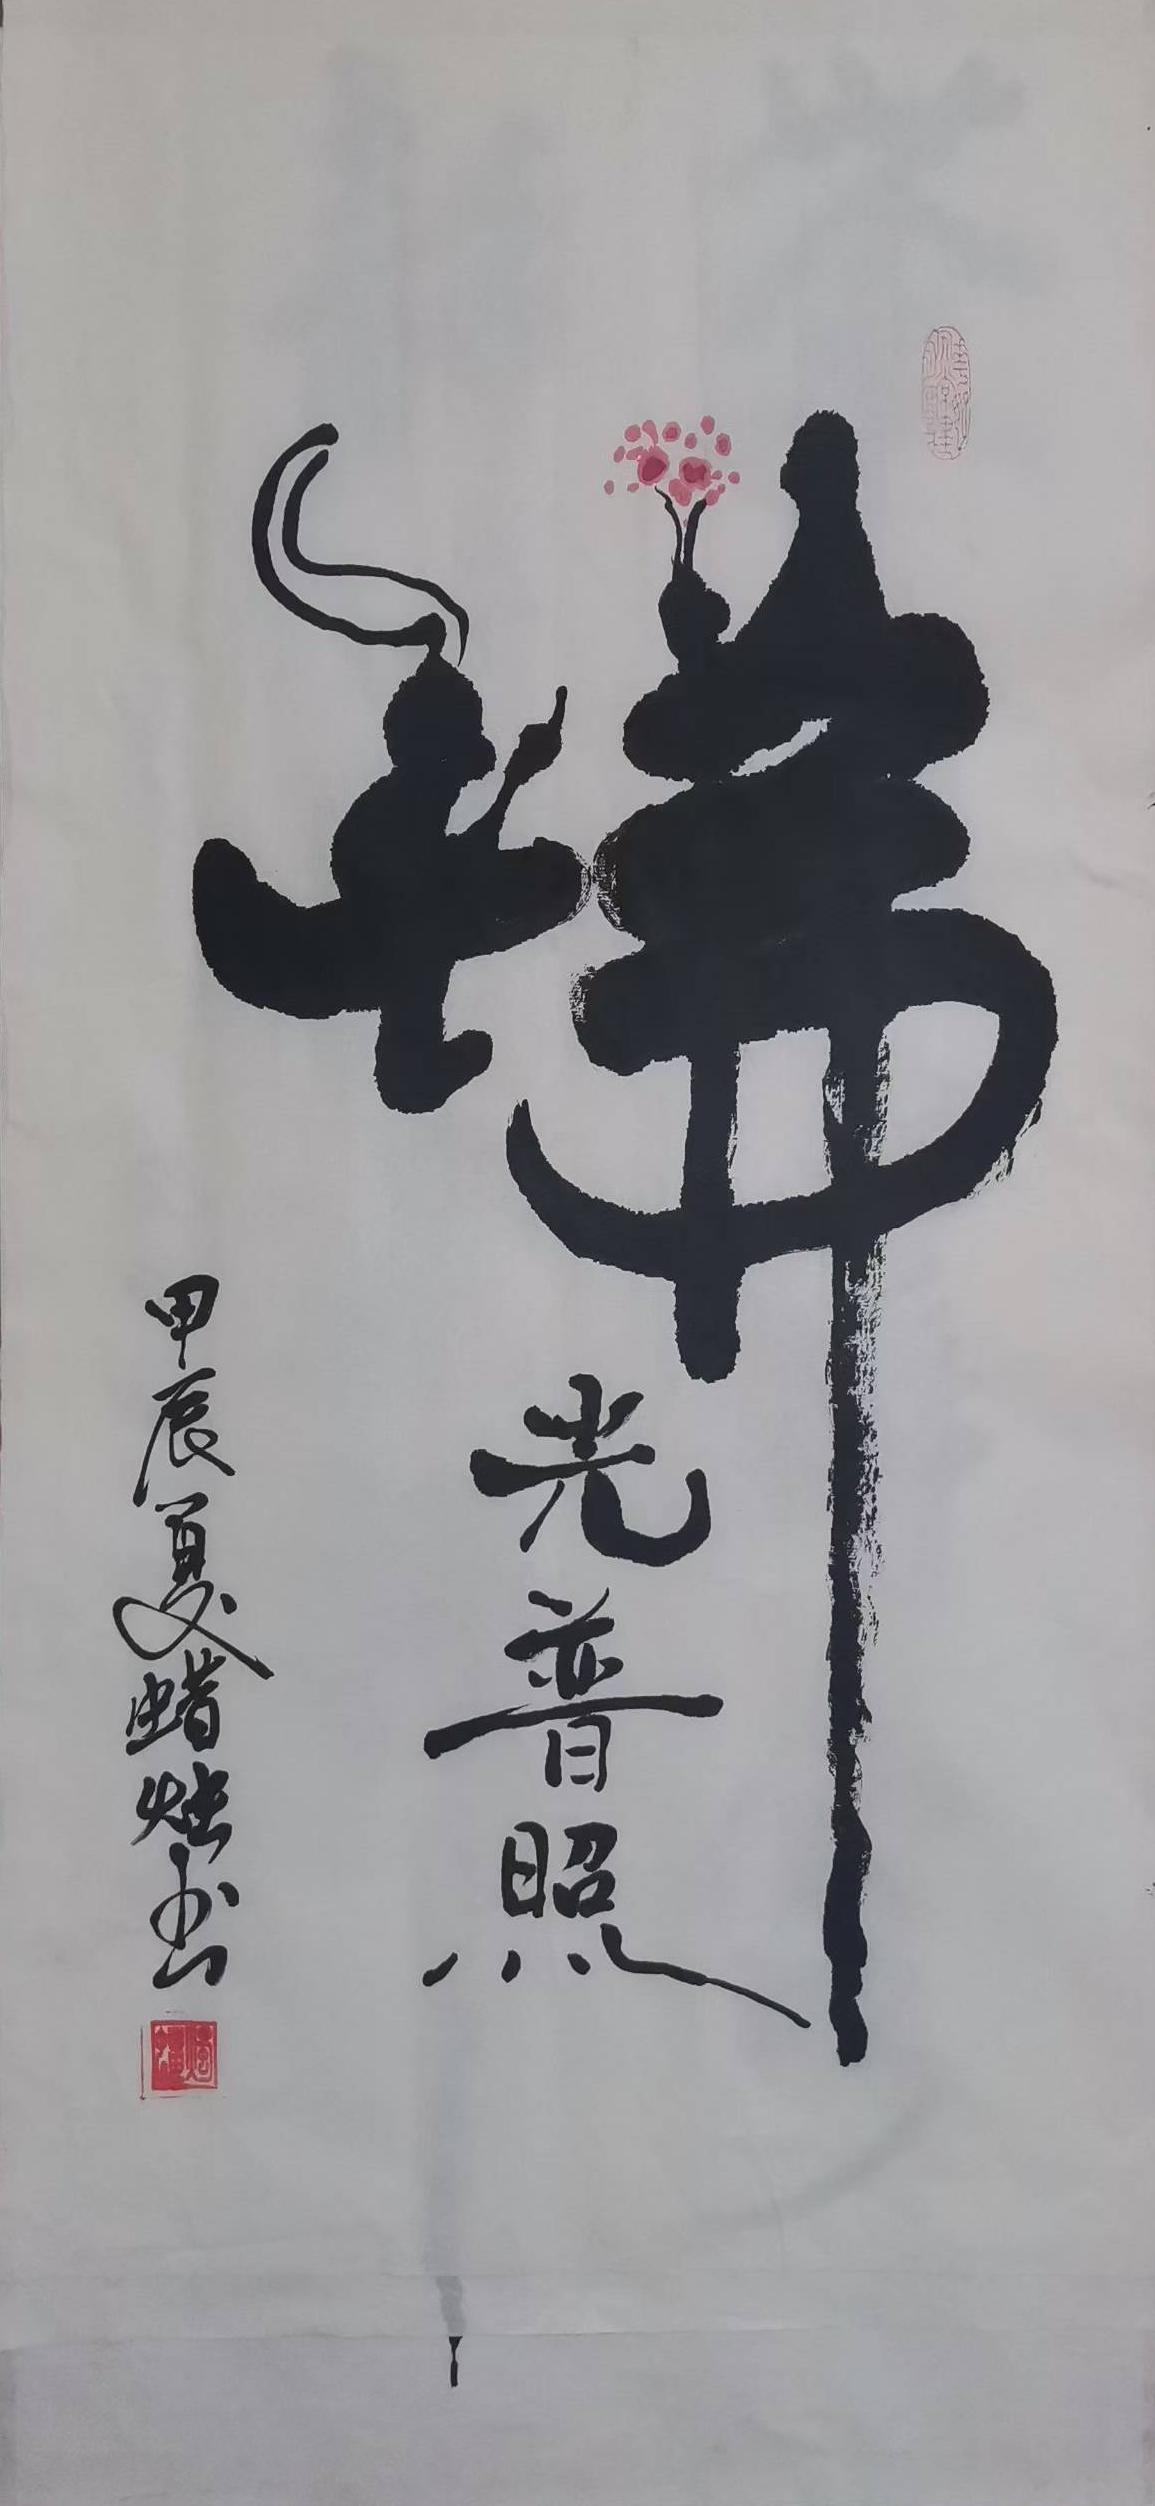 佛
光
普
照
甲辰夏蜡烛书